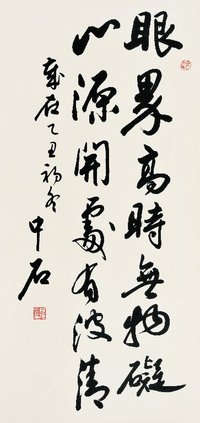 眼界高時無物礙
心源開處有波清
歲在乙丑初冬
中石